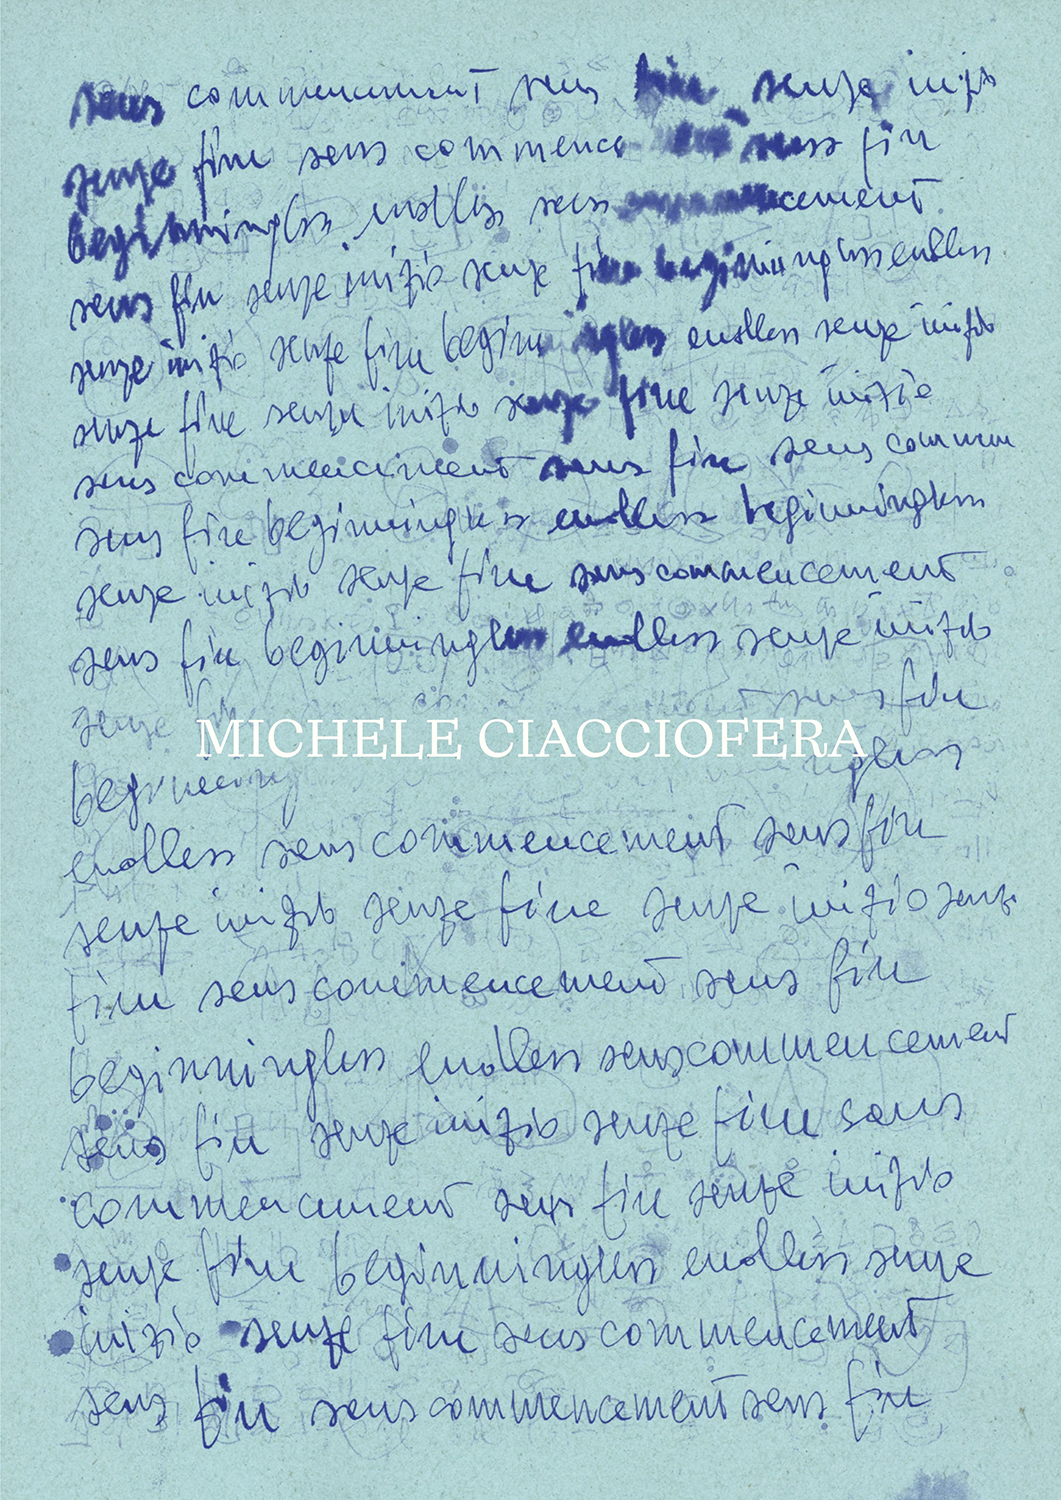 sans commencement sans fin senza inizio
senza fine sans commence sans fin
beginningless endless sans commencement
sans fin senza inizio senza fine beginningless endless
senza inizio senza fine beginningless endless senza inizio
senza fine senza inizio senza fine senza inizio
sans commencement sans fin sans commen
sans fine beginningless endless beginningless
senza inizio senza fine sans commencement
sans fin beginningless endless senza inizio
senza sans fin
MICHELE CIACCIOFERA
beginning ngless
endless sans commencement sans fin
senza inizio senza fine senza inizio senza
fine sans commencement sans fin
beginningless endless sans commencement
sans fin senza inizio senza fine sans
commencement sans fin senza inizio
senza fine beginningless endless senza
inizio senza fine sans commencement
sans fin sans commencement sans fin